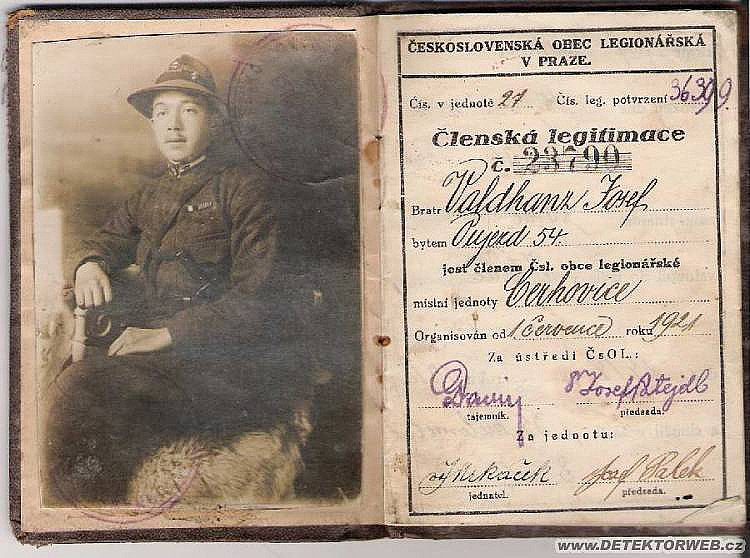 ČESKOSLOVENSKÁ OBEC LEGIONÁŘSKÁ
V PRAZE.
Čís. v jednotě 27 Čís. leg. potvrzení 36399.
Členská legitimace
č. 23790
Bratr Valdhanz Josef
bytem Oujezd 54
jest členem Čsl. obce legionářské
místní jednoty Cerhovice
Organisován od 1 července roku 1921
Za ústředí ČsOL.:
Josef Patejdl
tajemník. předseda.
Za jednotu:
Josef Palek
jednatel. předseda.
www.DETEKTORWEB.cz